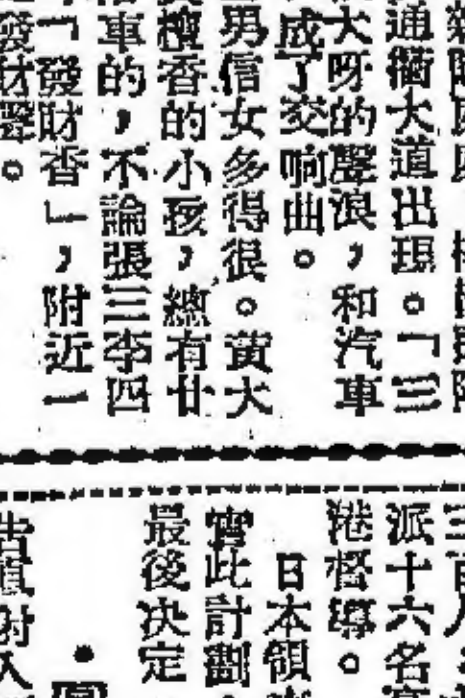 通衢大道出現。「三
大呀的聲浪,和汽車
成了交响曲。
男信女多得很。黃大
檀香的小孩,總有廿
車的,不論張三李四
「發財香」,附近一
發財聲。
三百
派十六名
港督導。
日本領
實此計劃
最後决定